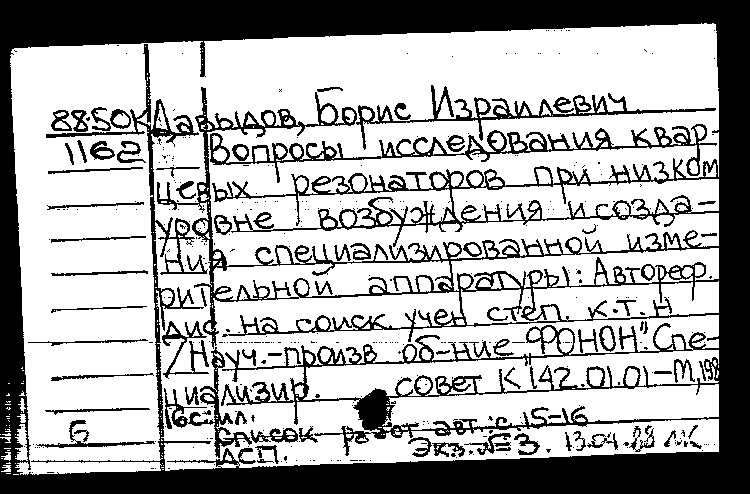 88-50К Давыдов, Борис Израилевич.
1162 Вопросы исследования квар-
цевых резонаторов при низком
уровне возбуждения и созда-
ния специализированной изме-
рительной аппаратуры: Автореф.
дис. на соиск. учен. степ. к.т.н
/Науч.-произв об-ние "ФОНОН". Спе-
циализир. совет К 142.01.01-М, 198
16с: ил.
Б Список работ авт.: с. 15-16
ДСП. Экз. № 3. 13.04.88 МК